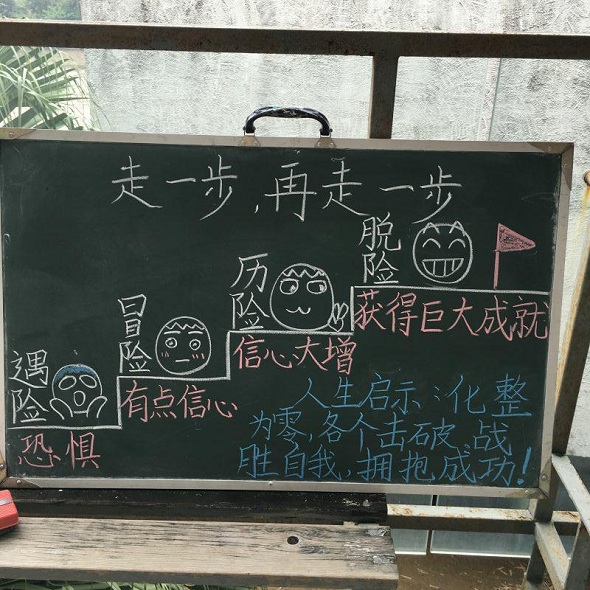 走一步,再走一步
脱险
历险
冒险
遇险
获得巨大成就
信心大增
有点信心
恐惧
人生启示:化整
为零,各个击破、战
胜自我,拥抱成功!